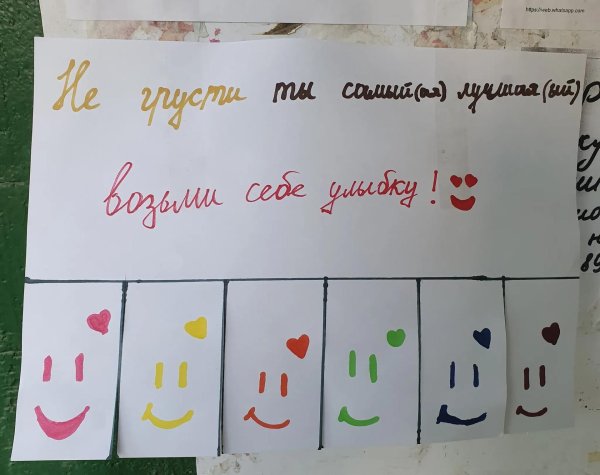 https://web.whatsapp.com
Не грусти ты самый(ая) лучшая(ый)
возьми себе улыбку!